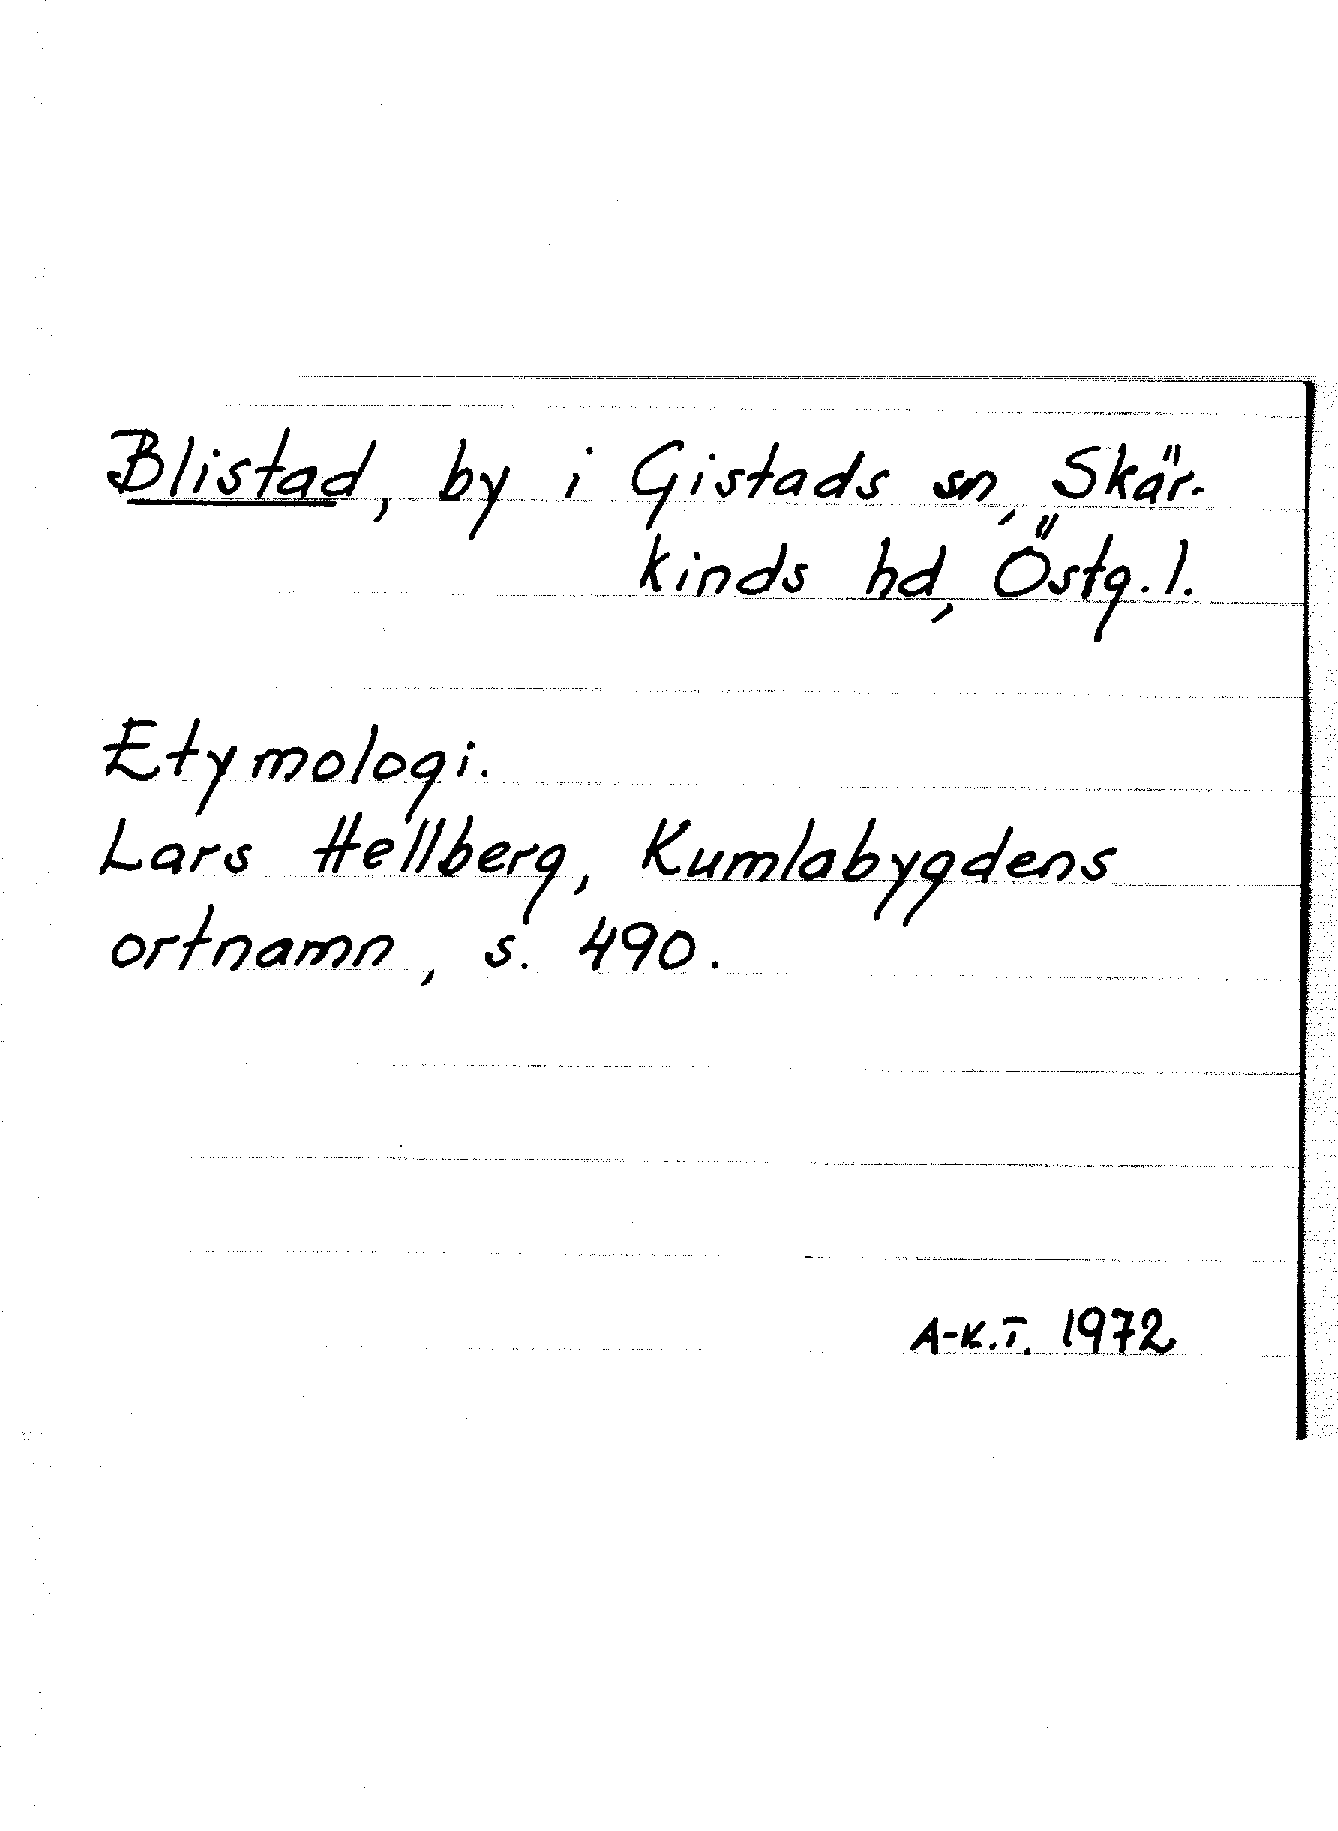 Blistad, by i Gistads sn, Skär-
kinds hd, Östg. l.
Etymologi.
Lars Hellberg, Kumlabygdens
ortnamn, s. 490.
A-K.T. 1972